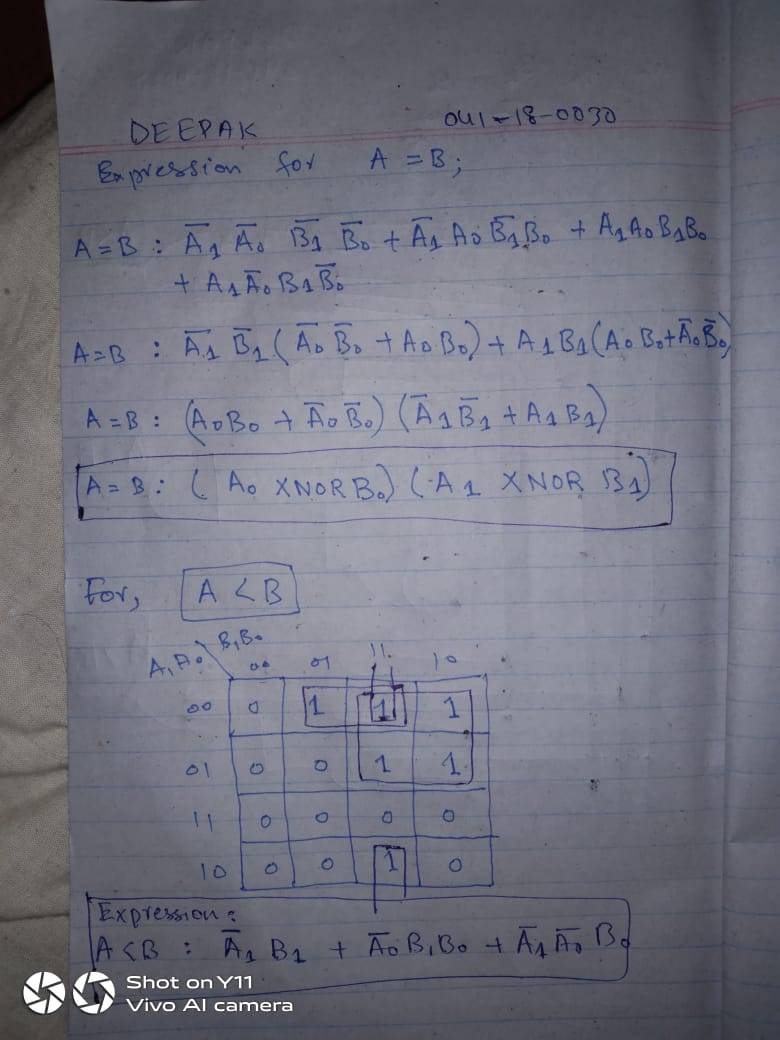 DEEPAK 041-18-0030
Expression for A = B;
A=B : A̅₁ A̅₀ B̅₁ B̅₀ + A̅₁ A₀ B̅₁ B₀ + A₁A₀B₁B₀
+ A₁A̅₀B₁B̅₀
A=B : A̅₁ B̅₁ (A̅₀ B̅₀ + A₀B₀) + A₁B₁(A₀B₀+A̅₀B̅₀)
A=B : (A₀B₀ + A̅₀B̅₀) (A̅₁B̅₁ + A₁B₁)
A=B : (A₀ XNOR B₀) (A₁ XNOR B₁)
For, A < B
B₁B₀
A₁A₀ 00 01 11 10
00 0 1 1 1
01 0 0 1 1
11 0 0 0 0
10 0 0 1 0
Expression:
A<B : A̅₁ B₁ + A̅₀B₁B₀ + A̅₁ A̅₀ B₀
Shot on Y11
Vivo AI camera